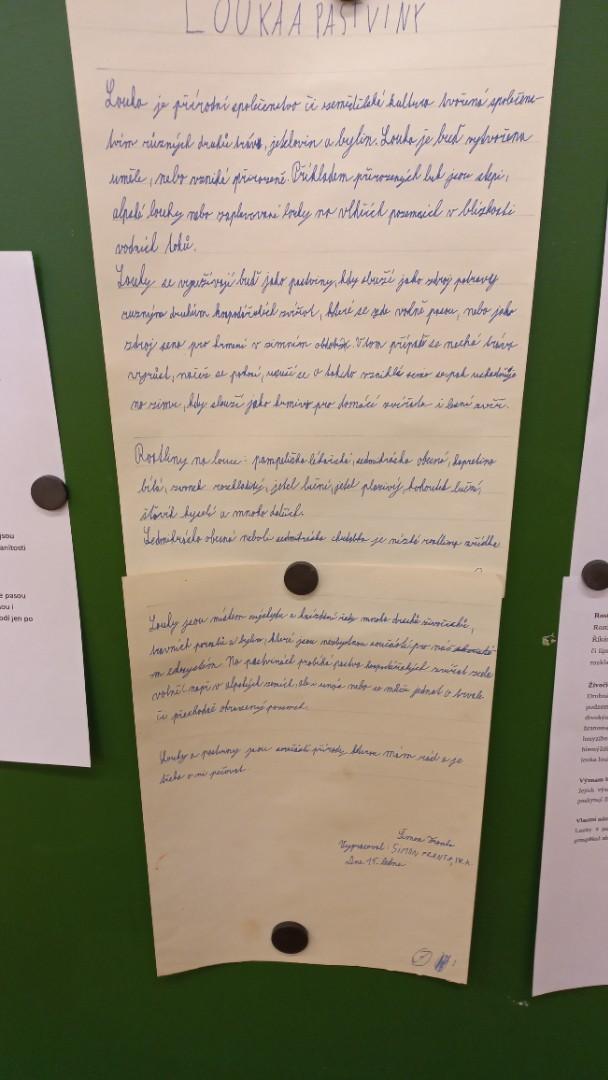 LOUKA A PASTVINY
Louka je přírodní společenstvo či zemědělská kultura tvořená společens-
tvím různých druhů trav, jetelovin a bylin. Louka je buď vytvořena
uměle, nebo vzniká přirozeně. Příkladem přirozených luk jsou stepi,
alpské louky nebo zaplavované louky na vlhčích pozemcích v blízkosti
vodních toků.
Louky se využívají buď jako pastviny, kdy slouží jako zdroj potravy
různým druhům hospodářských zvířat, které se zde volně pasou, nebo jako
zdroj sena pro krmení v zimním období. V tom případě se nechá tráva
vyrůst, načež se pokosí, usuší se a takto vzniklé seno se pak uskladňuje
na zimu, kdy slouží jako krmivo pro domácí zvířata i lesní zvěř.
Rostliny na louce: pampeliška lékařská, sedmikráska obecná, kopretina
bílá, zvonek rozkladitý, jetel luční, jetel plazivý, kohoutek luční,
šťovík kyselý a mnoho dalších.
Sedmikráska obecná neboli sedmikráska chudobka je nízká rostlina zřídka
Louky jsou místem výskytu a hnízdění řady mnoha druhů živočichů,
travních porostů a bylin, které jsou nezbytnou součástí pro náš
m ekosystém. Na pastvinách probíhá pastva hospodářských zvířat zcela
volně např. v alpských zemích, ale i u nás nebo se může jednat o trvale
či přechodně ohrazený pozemek.
Louky a pastviny jsou součástí přírody, kterou mám rád a je
třeba o ni pečovat.
Šimon Franta
Vypracoval: ŠIMON FRANTA,
Dne 15. ledna
jsou
anitosti
e pasou
sou i
odí jen po
Rost
Rost
Říkán
či lipn
rozkla
Živoč
Drobn
podzem
hmyzího
louka
Význam
Jejich
poskytují
Vlastní
Louky a